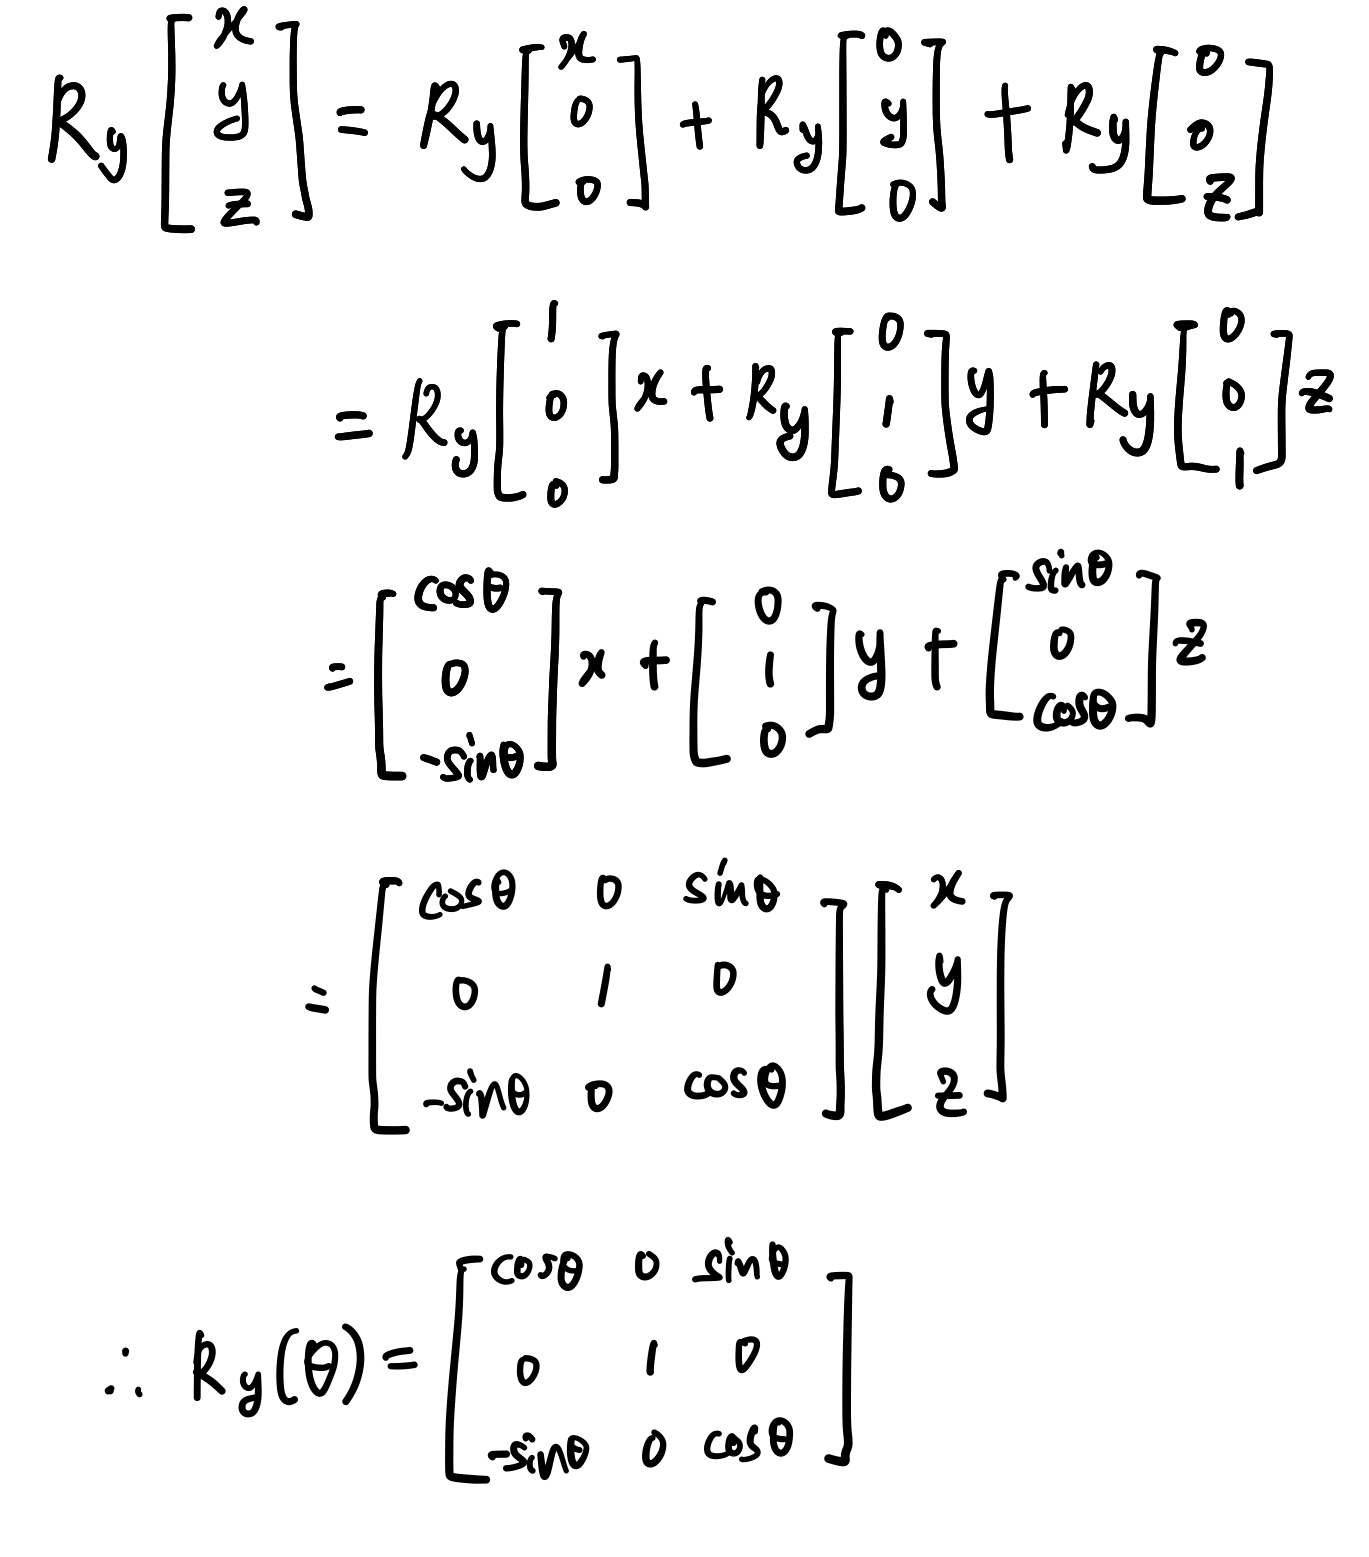 $R_y \begin{bmatrix} x \\ y \\ z \end{bmatrix} = R_y \begin{bmatrix} x \\ 0 \\ 0 \end{bmatrix} + R_y \begin{bmatrix} 0 \\ y \\ 0 \end{bmatrix} + R_y \begin{bmatrix} 0 \\ 0 \\ z \end{bmatrix}$
$= R_y \begin{bmatrix} 1 \\ 0 \\ 0 \end{bmatrix} x + R_y \begin{bmatrix} 0 \\ 1 \\ 0 \end{bmatrix} y + R_y \begin{bmatrix} 0 \\ 0 \\ 1 \end{bmatrix} z$
$= \begin{bmatrix} \cos\theta \\ 0 \\ -\sin\theta \end{bmatrix} x + \begin{bmatrix} 0 \\ 1 \\ 0 \end{bmatrix} y + \begin{bmatrix} \sin\theta \\ 0 \\ \cos\theta \end{bmatrix} z$
$= \begin{bmatrix} \cos\theta & 0 & \sin\theta \\ 0 & 1 & 0 \\ -\sin\theta & 0 & \cos\theta \end{bmatrix} \begin{bmatrix} x \\ y \\ z \end{bmatrix}$
$\therefore R_y(\theta) = \begin{bmatrix} \cos\theta & 0 & \sin\theta \\ 0 & 1 & 0 \\ -\sin\theta & 0 & \cos\theta \end{bmatrix}$